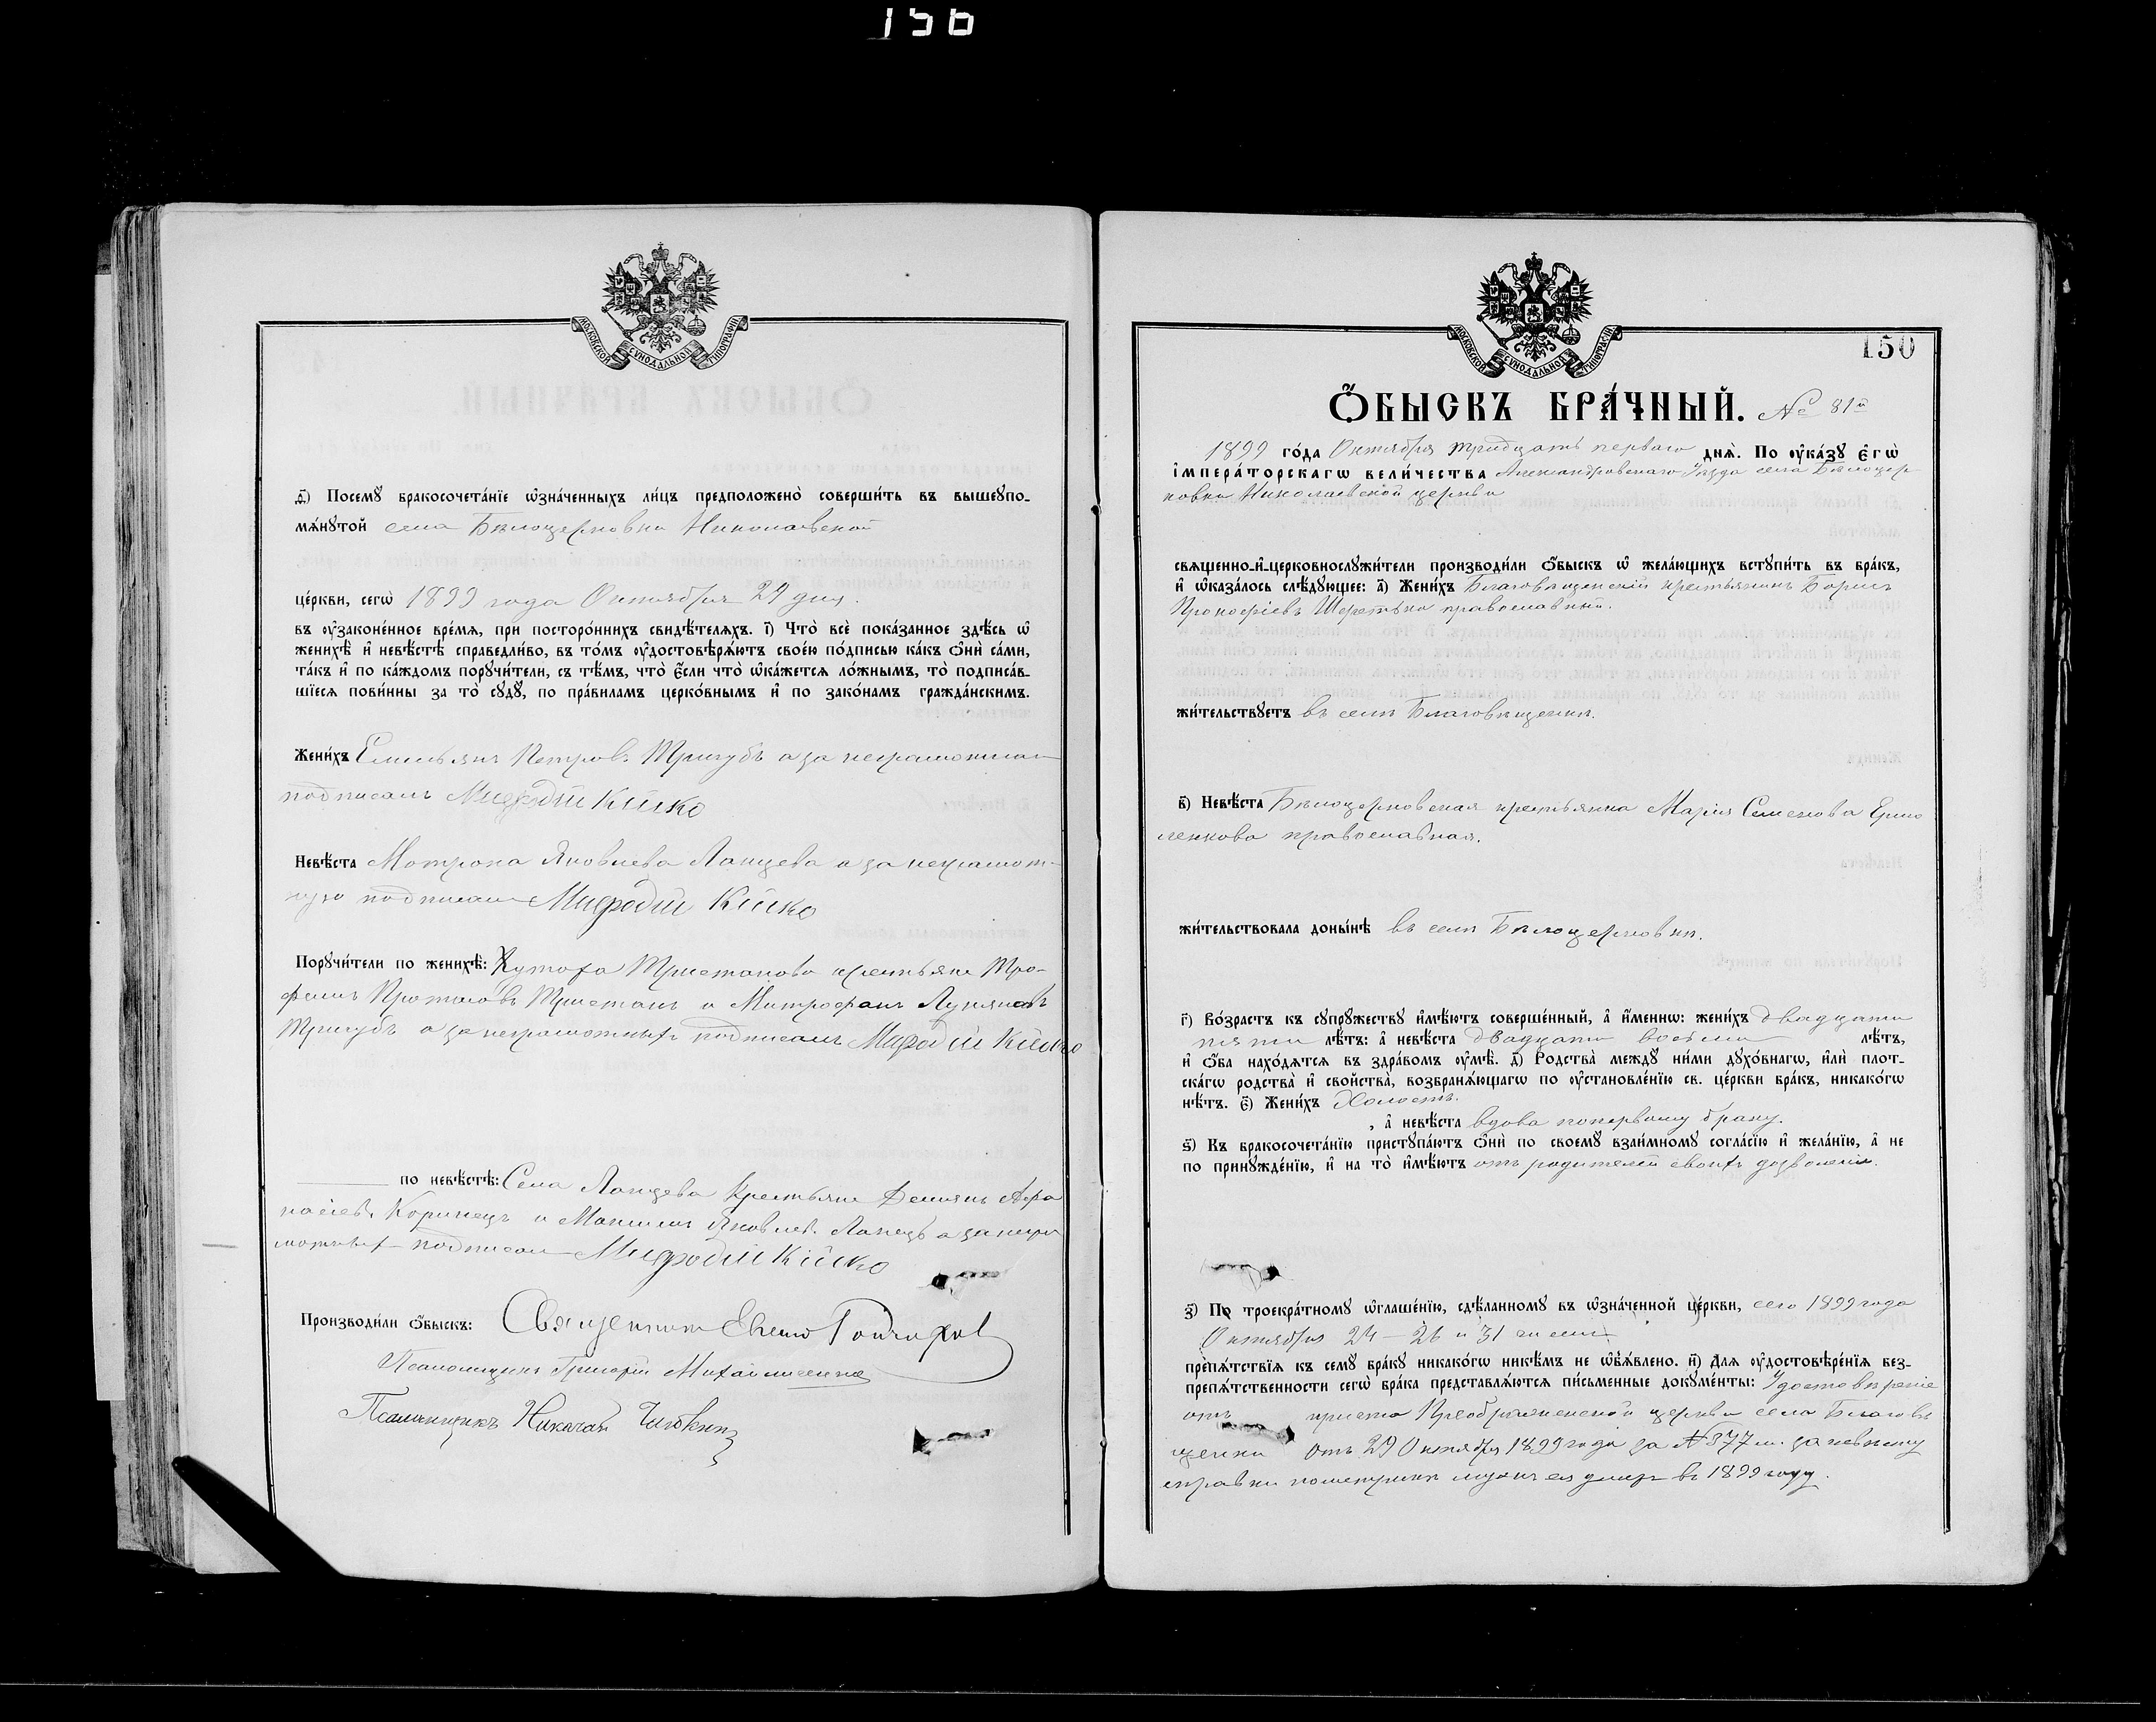 156
МОСКОВСКОЙ СѴНОДАЛЬНОЙ ТИПОГРАФІИ
д҃) Посемꙋ бракосочета́нїе ѡ҆зна́ченныхъ ли́цъ предположено̀ соверши́ть въ вышеꙋпо-
мѧ́нꙋтой села Бѣлоцерковки Николаевской
це́ркви, сегѡ̀ 1899 года Октября 29 дня.
въ оу҆законе́нное вре́мѧ, при посторо́ннихъ свидѣ́телѧхъ. і҃) Что̀ всѐ пока́занное здѣ́сь ѡ҆
женихѣ̀ и҆ невѣ́стѣ справедли́во, въ то́мъ оу҆достовѣрѧ́ютъ свое́ю по́дписью ка́къ ѻ҆нѝ са́ми,
та́къ и҆ по ка́ждомъ порꙋчи́тели, съ тѣ́мъ, что̀ є҆́сли что̀ ѡ҆ка́жется ло́жнымъ, то̀ подписа́в-
шїеся пови́нны за то̀ сꙋдꙋ̀, по пра́виламъ церко́внымъ и҆ по зако́намъ гражда́нскимъ.
Жени́хъ Емельянъ Петровъ Тригубъ а за неграмотнаго
подписалъ Мифодій Кійко
Невѣ́ста Матрона Яковлева Лапцева а за неграмот-
ную подписалъ Мифодій Кійко
Порꙋчи́тели по женихѣ̀: Хутора Тристанова крестьяне Тро-
фимъ Тристанъ и Митрофанъ
Тригубъ а за неграмотныхъ подписалъ Мифодій Кійко
по невѣ́стѣ: Села Лапцева крестьяне Демянъ Афа
насіевъ Коринецъ и Максимъ Яковлев. Лапецъ а за негра
мотныхъ подписалъ Мифодій Кійко
Производи́ли ѻ҆́быскъ: Священникъ Евгеній Гончаров
Псаломщикъ Григорій Михайличенко
Псаломщикъ Николай
МОСКОВСКОЙ СѴНОДАЛЬНОЙ ТИПОГРАФІИ
150
Ѻ҆́БЫСКЪ БРА́ЧНЫЙ. № 81й
1899 го́да Октября тридцать перваго днѧ̀. По оу҆ка́зꙋ є҆гѡ̀
і҆мпера́торскагѡ вели́чества Александровскаго уѣзда села Бѣлоцер-
ковки Николаевской церкви
свѧщенно-и҆-церковнослꙋжи́тели производи́ли ѻ҆́быскъ ѡ҆ жела́ющихъ встꙋпи́ть въ бра́къ,
и҆ ѡ҆каза́лось слѣ́дꙋющее: а҃) Жени́хъ Благовѣщенскій крестьянинъ Борисъ
Прокофіевъ Шеретько православный.
жи́тельствꙋетъ въ селѣ Благовѣщенкѣ.
в҃) Невѣ́ста Бѣлоцерковская крестьянка Марія Семенова Ермо
ленкова православная.
жи́тельствовала доны́нѣ въ селѣ Бѣлоцерковкѣ.
г҃) Во́зрастъ къ сꙋпрꙋ́жествꙋ и҆мѣ́ютъ соверше́нный, а҆ и҆́меннѡ: жени́хъ двадцати
пяти лѣ́тъ: а҆ невѣ́ста двадцати восьми лѣ́тъ,
и҆ ѻ҆́ба нахо́дѧтсѧ въ здра́вомъ оу҆мѣ̀. д҃) Родства̀ междꙋ ни́ми дꙋхо́внагѡ, и҆лѝ плот-
ска́гѡ родства̀ и҆ сво́йства, возбранѧ́ющагѡ по оу҆становле́нїю св. це́ркви бра́къ, никако́гѡ
нѣ́тъ. є҃) Жени́хъ Холостъ.
, а҆ невѣ́ста вдова по первому браку.
ѕ҃) Къ бракосочета́нїю пристꙋпа́ютъ ѻ҆нѝ по своемꙋ̀ взаи́мномꙋ согла́сїю и҆ жела́нїю, а҆ не
по принꙋжде́нїю, и҆ на то̀ и҆мѣ́ютъ отъ родителей своихъ дозволеніе.
з҃) По троекра́тномꙋ ѡ҆глаше́нїю, сдѣ́ланномꙋ въ ѡ҆зна́ченной це́ркви, сего 1899 года
Октября 24 - 26 и 31 чиселъ
препѧ́тствїѧ къ семꙋ̀ бра́кꙋ никако́гѡ никѣ́мъ не ѡ҆б̾ѧ́влено. и҃) Длѧ оу҆достовѣре́нїѧ без-
препѧ́тственности сегѡ̀ бра́ка представлѧ́ются пи́сьменные докꙋме́нты: Удостовѣреніе
отъ причта Преображенской церкви села Благовѣ
щенки отъ 29 Октября 1899 года за № 377 м. за невѣсту
справки по метрикѣ мужъ ея умеръ въ 1899 году.